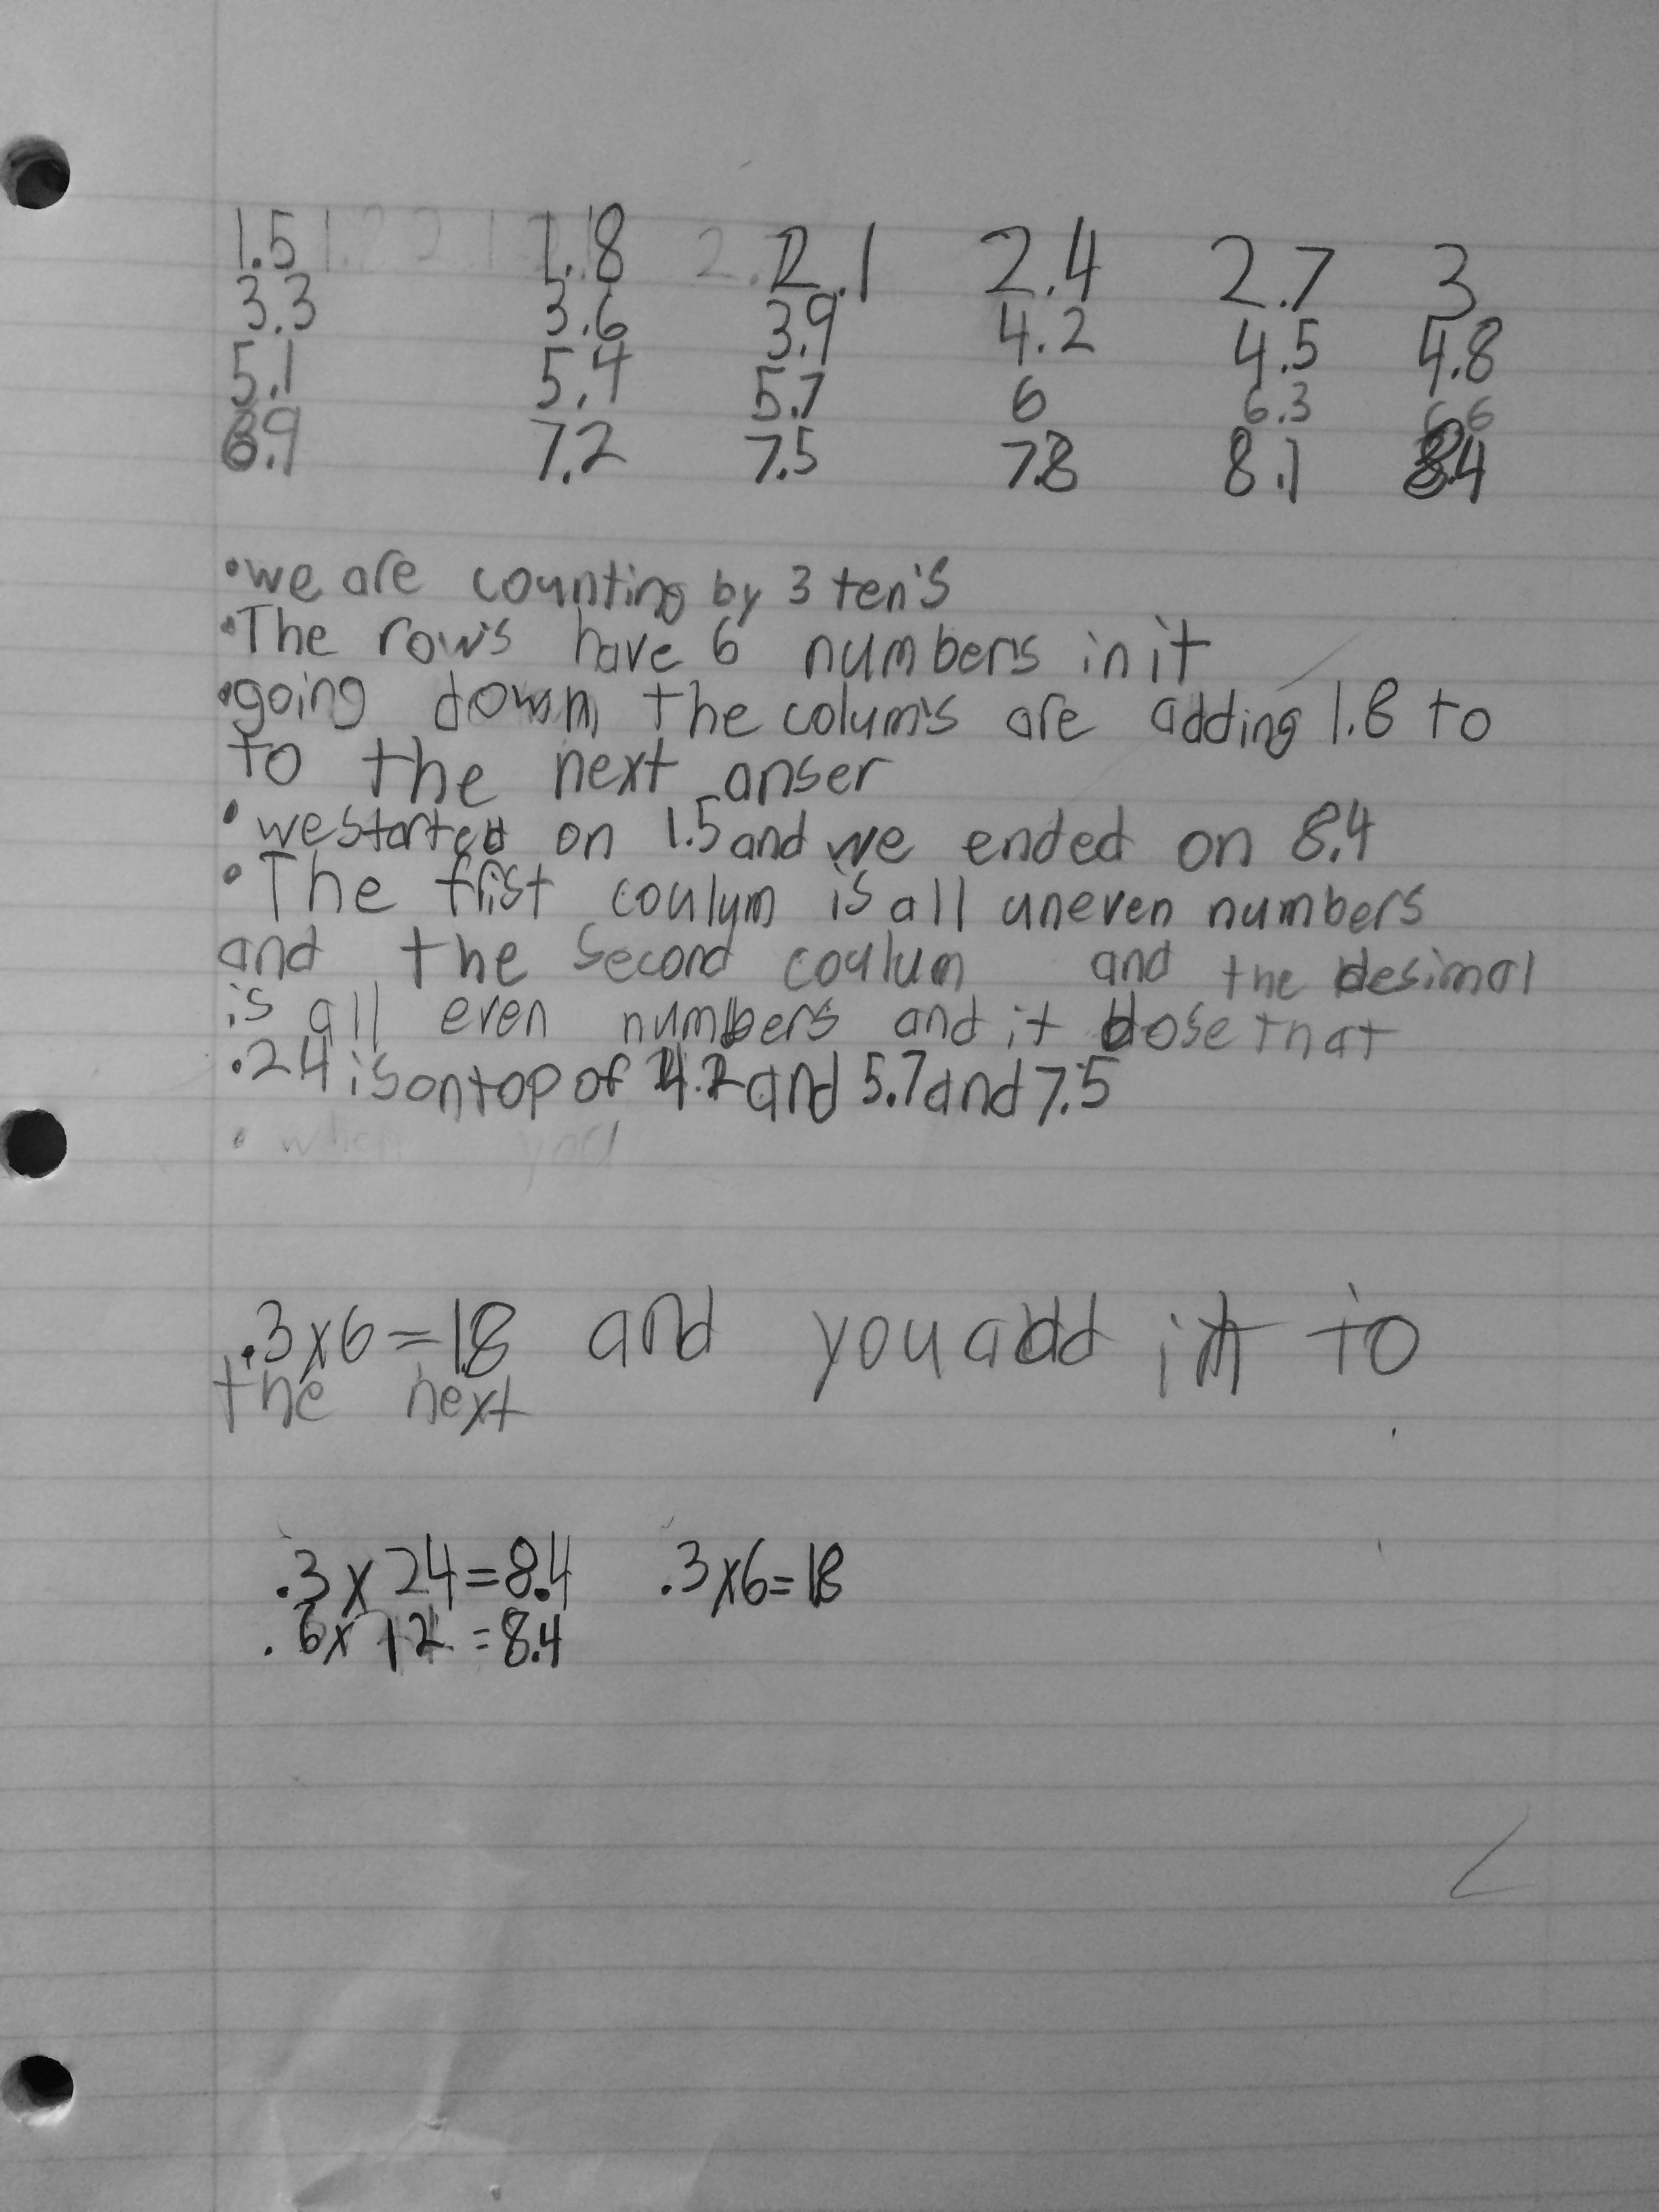 1.5 1.8 2.1 2.4 2.7 3
3.3 3.6 3.9 4.2 4.5 4.8
5.1 5.4 5.7 6 6.3 6.6
6.9 7.2 7.5 7.8 8.1 8.4
•we are counting by 3 ten's
•The row's have 6 numbers in it
•going down the colum's are adding 1.8 to
to the next anser
•we started on 1.5 and we ended on 8.4
•The first coulym is all uneven numbers
and the second coulum and the desimal
is all even numbers and it dose that
•24 is on top of 4.2 and 5.7 and 7.5
• when you
.3x6=1.8 and you add it to
the next
.3 x 24=8.4 .3x6=18
.6x 12 =8.4